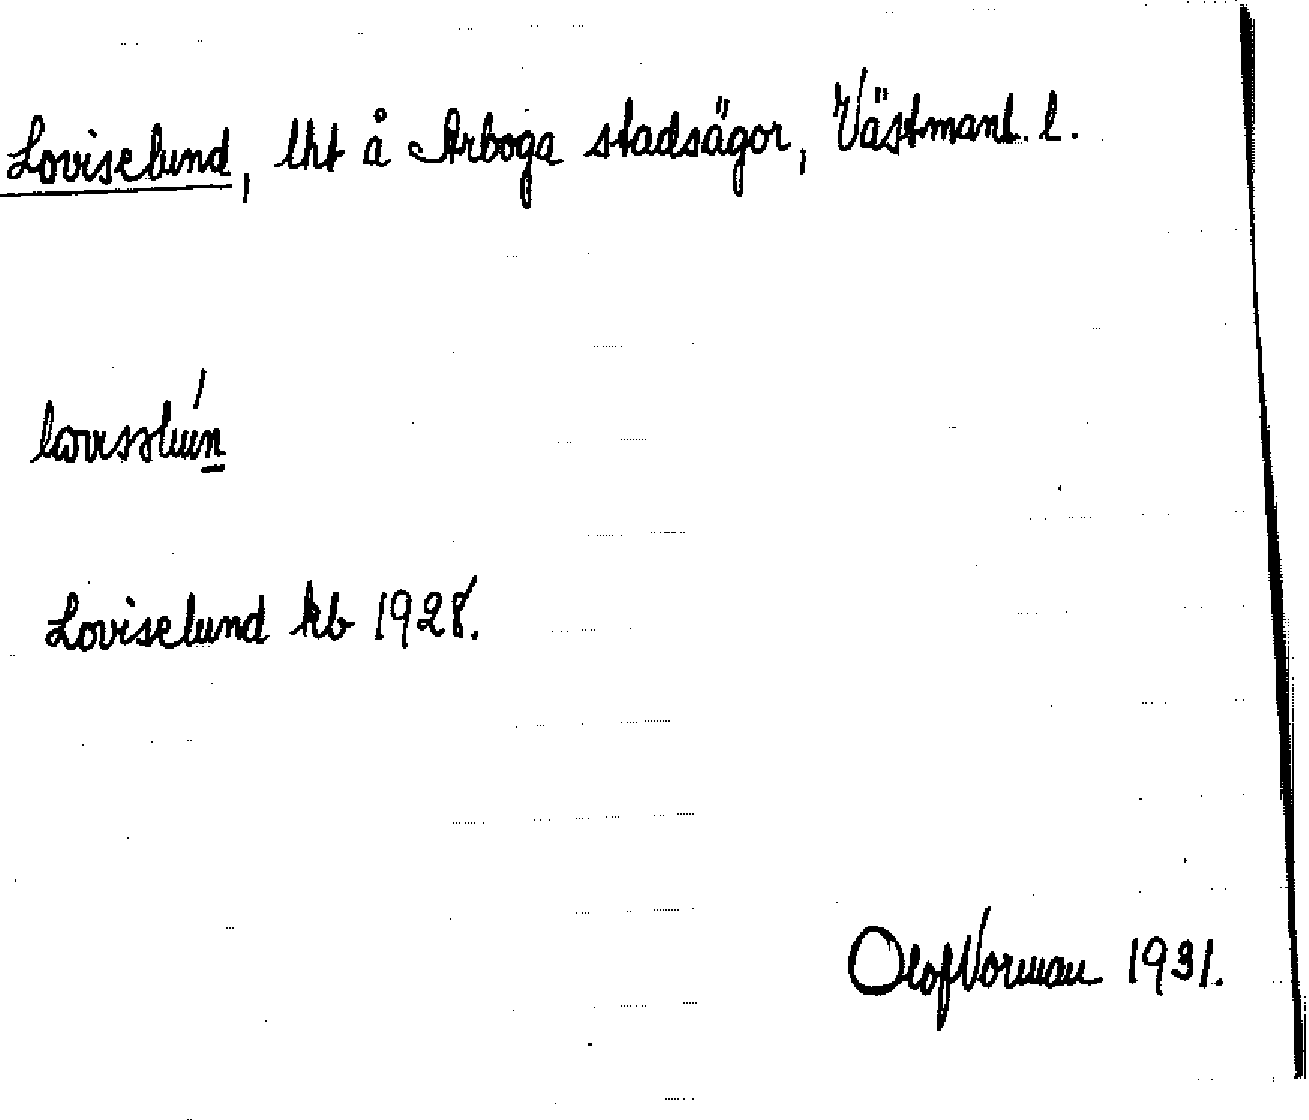 Loviselund, lht å Arboga stadsägor, Västmanl. l.
Loviselund kb 1928.
Olof Vorman 1931.